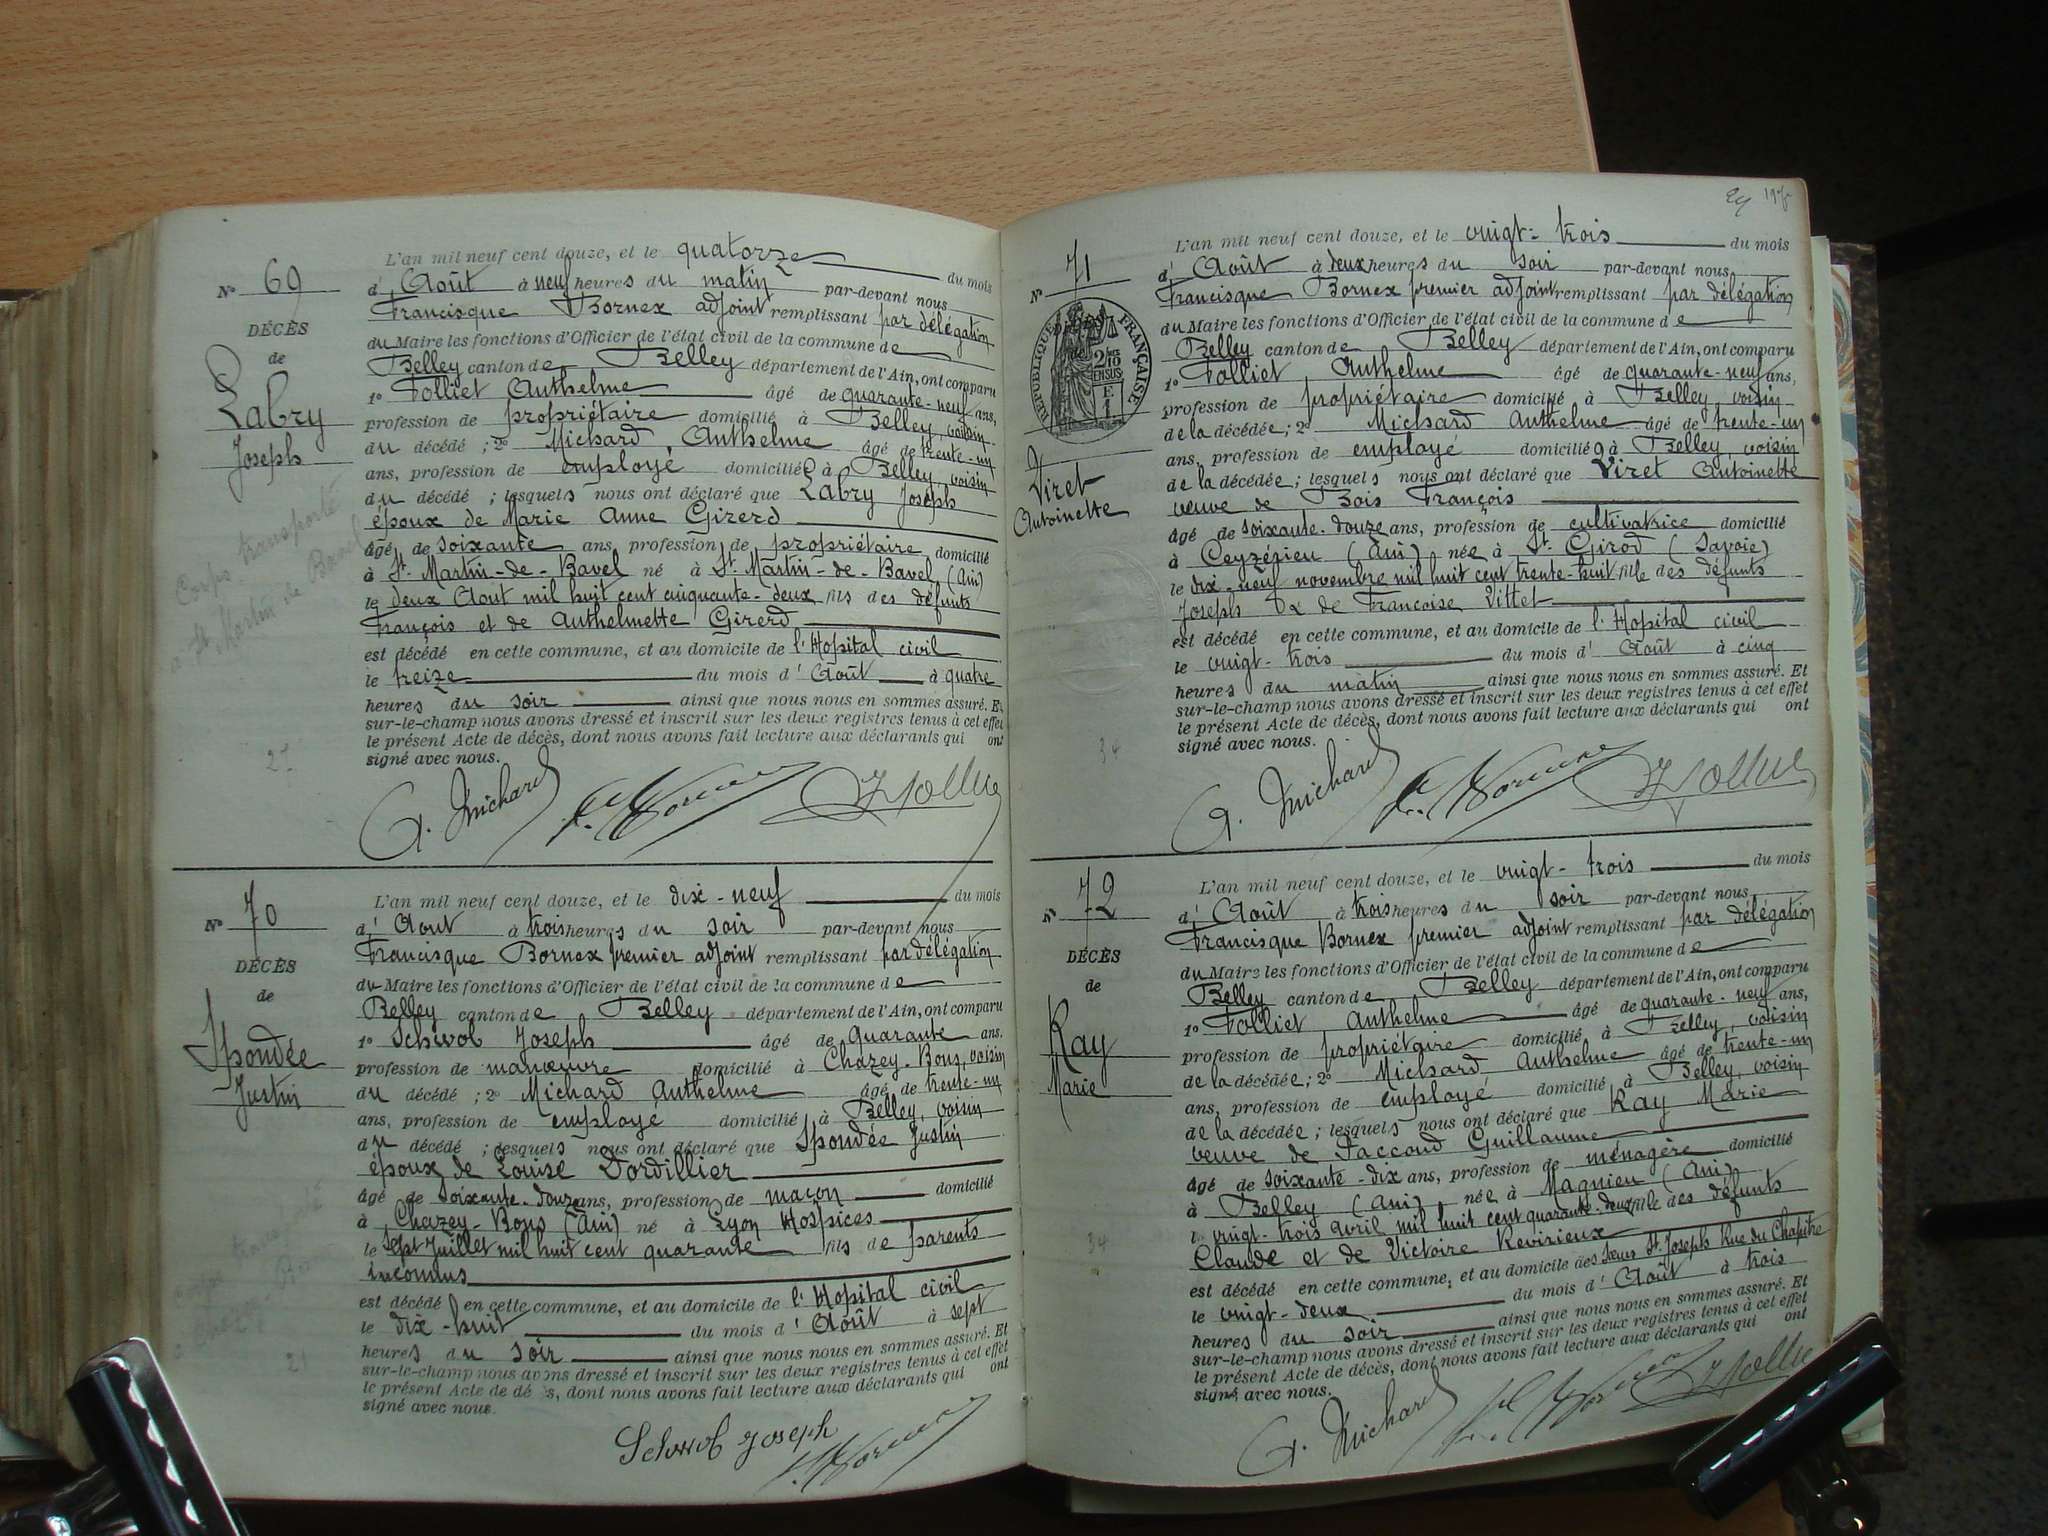 L'an mil neuf cent douze, et le quatorze du mois
N° 69
d' Août à neuf heures du matin par-devant nous
Francisque Bornex adjoint remplissant par délégation
DÉCÈS
du Maire les fonctions d'Officier de l'état civil de la commune de
de
Belley canton de Belley département de l'Ain, ont comparu
1° Folliet Anthelme âgé de quarante-neuf ans,
Labry
profession de propriétaire domicilié à Belley, voisin
Joseph
du décédé ; 2° Michard, Anthelme âgé de trente-un
ans, profession de employé domicilié à Belley, voisin
du décédé ; lesquels nous ont déclaré que Labry Joseph
époux de Marie Anne Girerd
Corps transporté
à St Martin de Bavel
âgé de soixante ans profession de propriétaire domicilié
à St. Martin-de-Bavel né à St. Martin-de-Bavel (Ain)
le deux Aout mil huit cent cinquante-deux fils des défunts
François et de Anthelmette Girerd
est décédé en cette commune, et au domicile de l'Hopital civil
le treize du mois d' Août à quatre
heures du soir ainsi que nous nous en sommes assuré. Et
sur-le-champ nous avons dressé et inscrit sur les deux registres tenus à cet effet
le présent Acte de décès, dont nous avons fait lecture aux déclarants qui ont
signé avec nous.
27
A. Michard
L'an mil neuf cent douze, et le dix-neuf du mois
N° 70
d' Aout à trois heures du soir par-devant nous
Francisque Bornex premier adjoint remplissant par délégation
DÉCÈS
du Maire les fonctions d'Officier de l'état civil de la commune de
de
Belley canton de Belley département de l'Ain, ont comparu
1° Schwob Joseph âgé de Quarante ans,
Spondée
profession de manœuvre domicilié à Chazey-Bons, voisin
Justin
du décédé ; 2° Michard Anthelme âgé de trente-un
ans, profession de employé domicilié à Belley, voisin
du décédé ; lesquels nous ont déclaré que Spondée Justin
époux de Louise Dordillier
âgé de soixante-douze ans, profession de maçon domicilié
à Chazey-Bons (Ain) né à Lyon Hospices
le sept Juillet mil huit cent quarante fils de parents
inconnus
est décédé en cette commune, et au domicile de l'Hopital civil
le dix-huit du mois d' Août à sept
heures du soir ainsi que nous nous en sommes assuré. Et
sur-le-champ nous avons dressé et inscrit sur les deux registres tenus à cet effet
le présent Acte de dé s, dont nous avons fait lecture aux déclarants qui ont
signé avec nous.
Schwob Joseph
L'an mil neuf cent douze, et le vingt-trois du mois
N° 71
d' Août à deux heures du soir par-devant nous
Francisque Bornex premier adjoint remplissant par délégation
RÉPUBLIQUE FRANÇAISE
du Maire les fonctions d'Officier de l'état civil de la commune de
Belley canton de Belley département de l'Ain, ont comparu
1° Folliet, Anthelme âgé de quarante-neuf ans,
profession de propriétaire domicilié à Belley, voisin
de la décédée ; 2° Michard Anthelme âgé de trente-un
ans, profession de employé domicilié à Belley, voisin
Viret
Antoinette
de la décédée ; lesquels nous ont déclaré que Viret Antoinette
veuve de Bois François
âgé de soixante-douze ans, profession de cultivatrice domicilié
à Ceyzérieu (Ain) née à St. Girod (Savoie)
le dix-neuf novembre mil huit cent trente-huit fille des défunts
Joseph & de Francoise Vittet
est décédé en cette commune, et au domicile de l'Hopital civil
le vingt-trois du mois d' Août à cinq
heures du matin ainsi que nous nous en sommes assuré. Et
sur-le-champ nous avons dressé et inscrit sur les deux registres tenus à cet effet
le présent Acte de décès, dont nous avons fait lecture aux déclarants qui ont
signé avec nous.
34
A. Michard
L'an mil neuf cent douze, et le vingt-trois du mois
N° 72
d' Août à trois heures du soir par-devant nous
Francisque Bornex premier adjoint remplissant par délégation
DÉCÈS
du Maire les fonctions d'Officier de l'état civil de la commune de
de
Belley canton de Belley département de l'Ain, ont comparu
1° Folliet, Anthelme âgé de quarante-neuf ans,
Ray
profession de propriétaire domicilié à Belley, voisin
Marie
de la décédée ; 2° Michard Anthelme âgé de trente-un
ans, profession de employé domicilié à Belley, voisin
de la décédée ; lesquels nous ont déclaré que Ray Marie
veuve de Faccoud Guillaume
âgé de soixante-dix ans, profession de ménagère domicilié
à Belley (Ain) née à Magnieu (Ain)
le vingt-trois avril mil huit cent quarante-deux fille des défunts
Claude et de Victoire Revirieux
est décédé en cette commune, et au domicile des Sœurs St. Joseph Rue du Chapitre
le vingt-deux du mois d' Août à trois
heures du soir ainsi que nous nous en sommes assuré. Et
sur-le-champ nous avons dressé et inscrit sur les deux registres tenus à cet effet
le présent Acte de décès, dont nous avons fait lecture aux déclarants qui ont
signé avec nous.
34
A. Michard